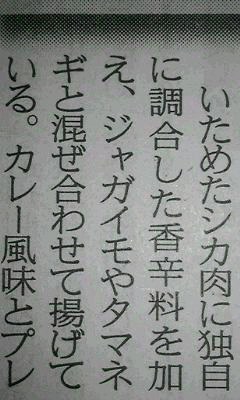 いためたシカ肉に独自
に調合した香辛料を加
え、ジャガイモやタマネ
ギと混ぜ合わせて揚げて
いる。カレー風味とプレ